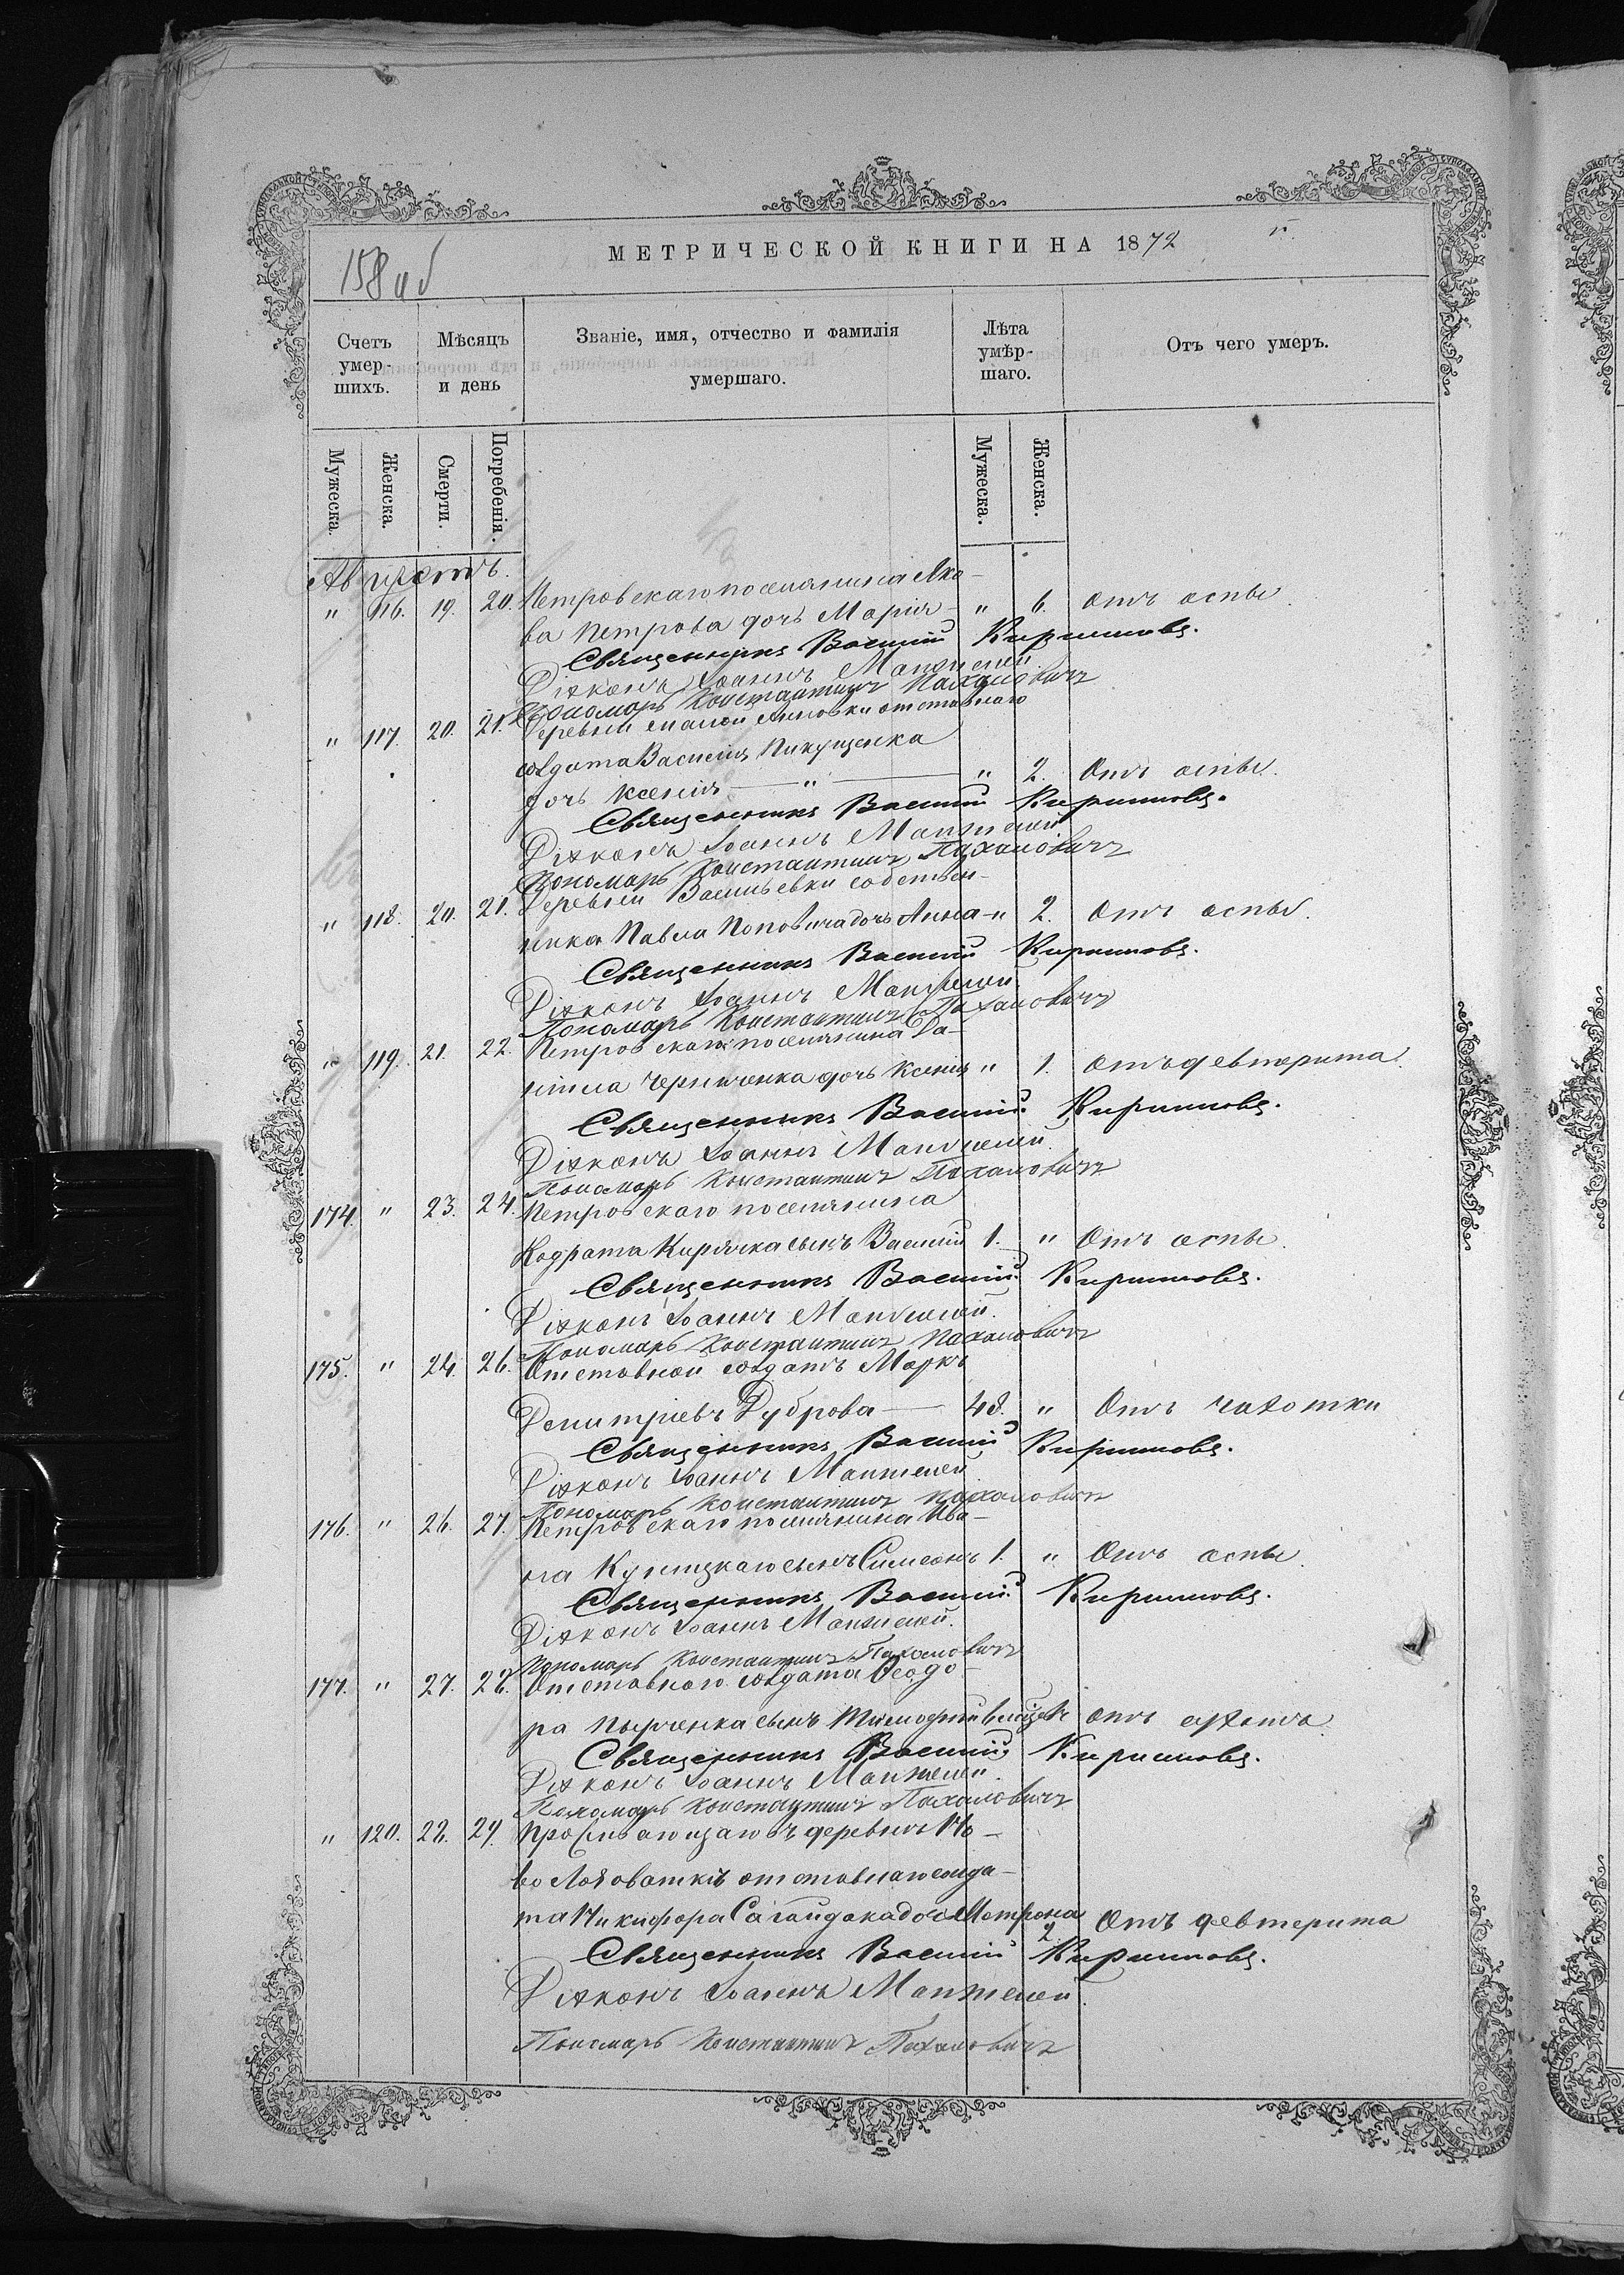 МЕТРИЧЕСКОЙ КНИГИ НА 1872 г.
158 об
Счетъ умер-шихъ. Мѣсяцъ и день Званіе, имя, отчество и фамилія умершаго. Лѣта умѣр-шаго. Отъ чего умеръ.
Мужеска. Женска. Смерти. Погребенія. Мужеска. Женска.
Августъ.
" 116. 19. 20. Петровскаго поселянина Яко-
ва Петрова дочь Марія - " 6. отъ оспы.
Священникъ Василій Кириловъ.
Діаконъ Іоаннъ
Пономарь Константинъ Пахаловичъ
" 117. 20. 21. Деревни малой Анновки отставнаго
солдата Василія
дочь Ксенія — " — " 2. Отъ оспы.
Священникъ Василій Кириловъ.
Діаконъ Іоаннъ
Пономарь Константинъ Пахаловичъ
" 118. 20. 21. Деревни Васильевки собствен-
ника Павла Поповича дочь Анна - " 2. Отъ оспы.
Священникъ Василій Кириловъ.
Діаконъ Іоаннъ
Пономарь Константинъ Пахаловичъ
" 119. 21. 22. Петровскаго поселянина Да-
ніила Черниченка дочь Ксенія " 1. отъ девтерита.
Священникъ Василій Кириловъ.
Діаконъ Іоаннъ
Пономарь Константинъ Пахаловичъ
174. " 23. 24. Петровскаго поселянина
Кодрата Кирячка сынъ Василій 1. " Отъ оспы.
Священникъ Василій Кириловъ.
Діаконъ Іоаннъ
Пономарь Константинъ Пахаловичъ
175. " 24. 26. Отставной солдатъ Маркъ
Димитріевъ Дуброва — 48. " Отъ чахотки
Священникъ Василій Кириловъ.
Діаконъ Іоаннъ
Пономарь Константинъ Пахаловичъ
176. " 26. 27. Петровскаго поселянина Ива-
на Купицкаго сынъ Симеонъ 1. " Отъ оспы.
Священникъ Василій Кириловъ.
Діаконъ Іоаннъ
Пономарь Константинъ Пахаловичъ
177. " 27. 28. Отставнаго солдата Ѳеодо-
ра сынъ Тимофій отъ
Священникъ Василій Кириловъ.
Діаконъ Іоаннъ
Пономарь Константинъ Пахаловичъ
" 120. 28. 29. Проживающаго въ деревнѣ Но-
во отставнаго солда-
та Никифора Сагайдака дочь Матрона 2. Отъ девтерита
Священникъ Василій Кириловъ.
Діаконъ Іоаннъ
Пономарь Константинъ Пахаловичъ